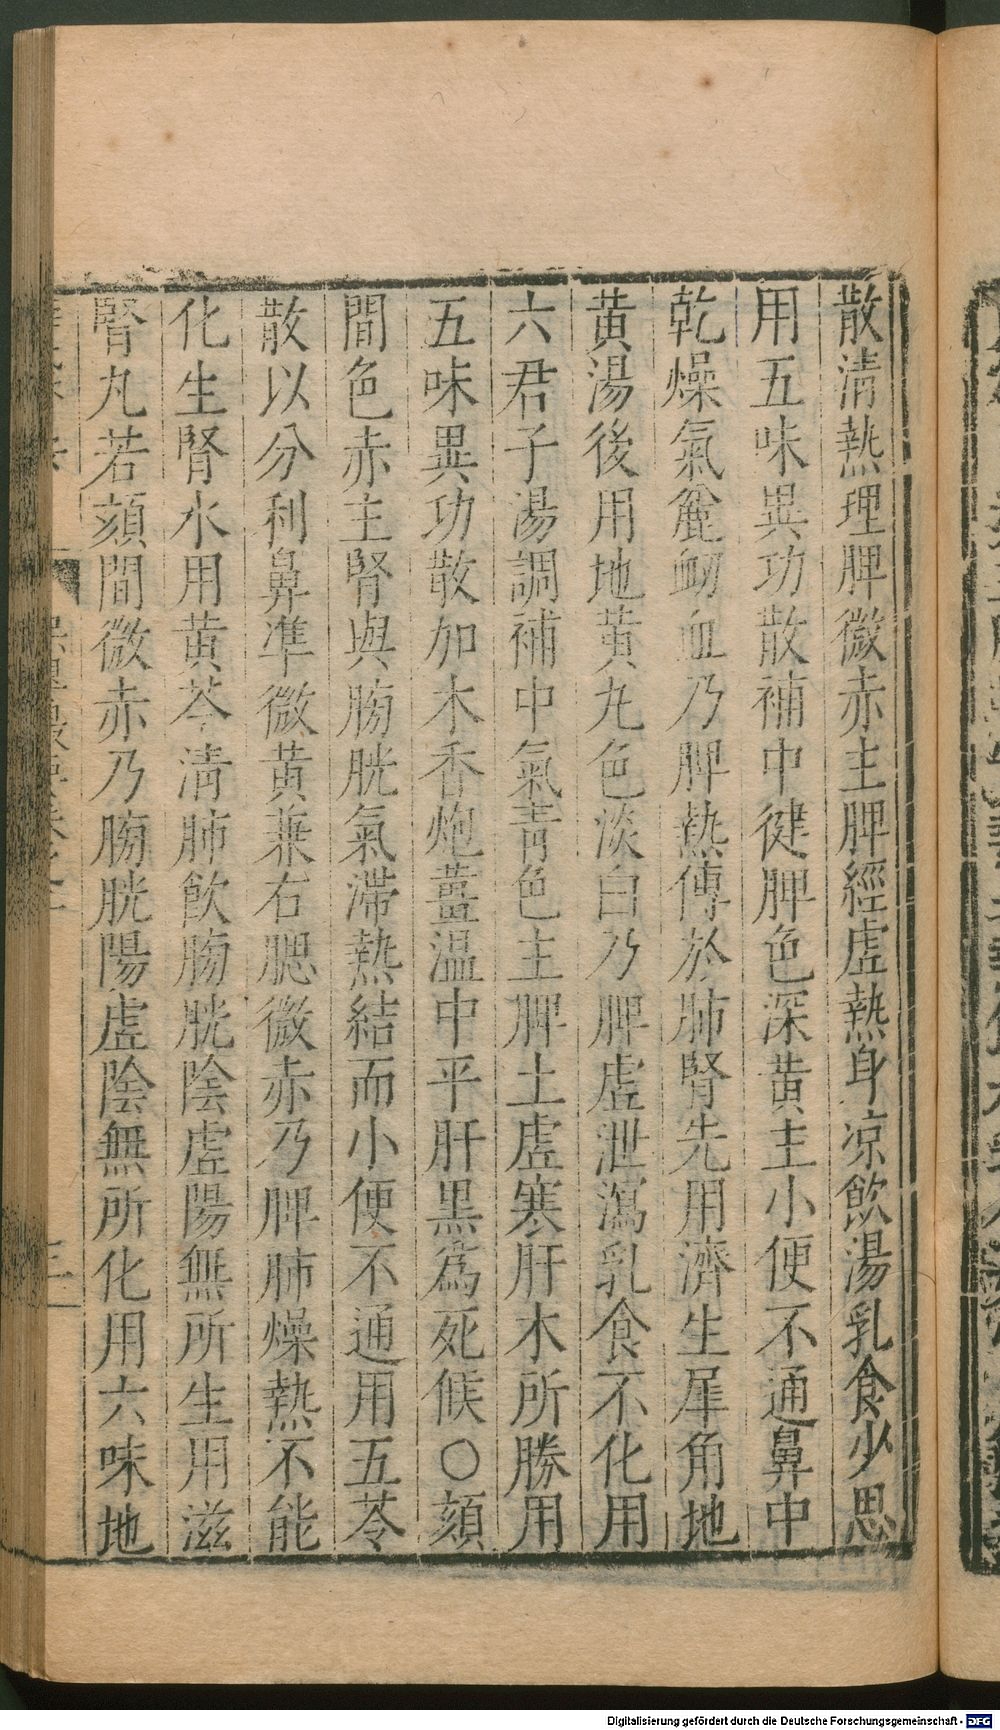 散清熱理脾微赤主脾經虛熱身凉飲湯乳食少思
用五味異功散補中健脾色深黄主小便不通鼻中
乾燥氣麄衂血乃脾熱傳於肺腎先用濟生犀角地
黄湯後用地黄丸色淡白乃脾虛泄瀉乳食不化用
六君子湯調補中氣青色主脾土虛寒肝木所勝用
五味異功散加木香炮薑温中平肝黒為死候○頦
間色赤主腎與膀胱氣滯熱結而小便不通用五苓
散以分利鼻凖微黄兼右腮微赤乃脾肺燥熱不能
化生腎水用黄芩清肺飲膀胱陰虛陽無所生用滋
腎丸若頦間微赤乃膀胱陽虛陰無所化用六味地
三
Digitalisierung gefördert durch die Deutsche Forschungsgemeinschaft - DFG